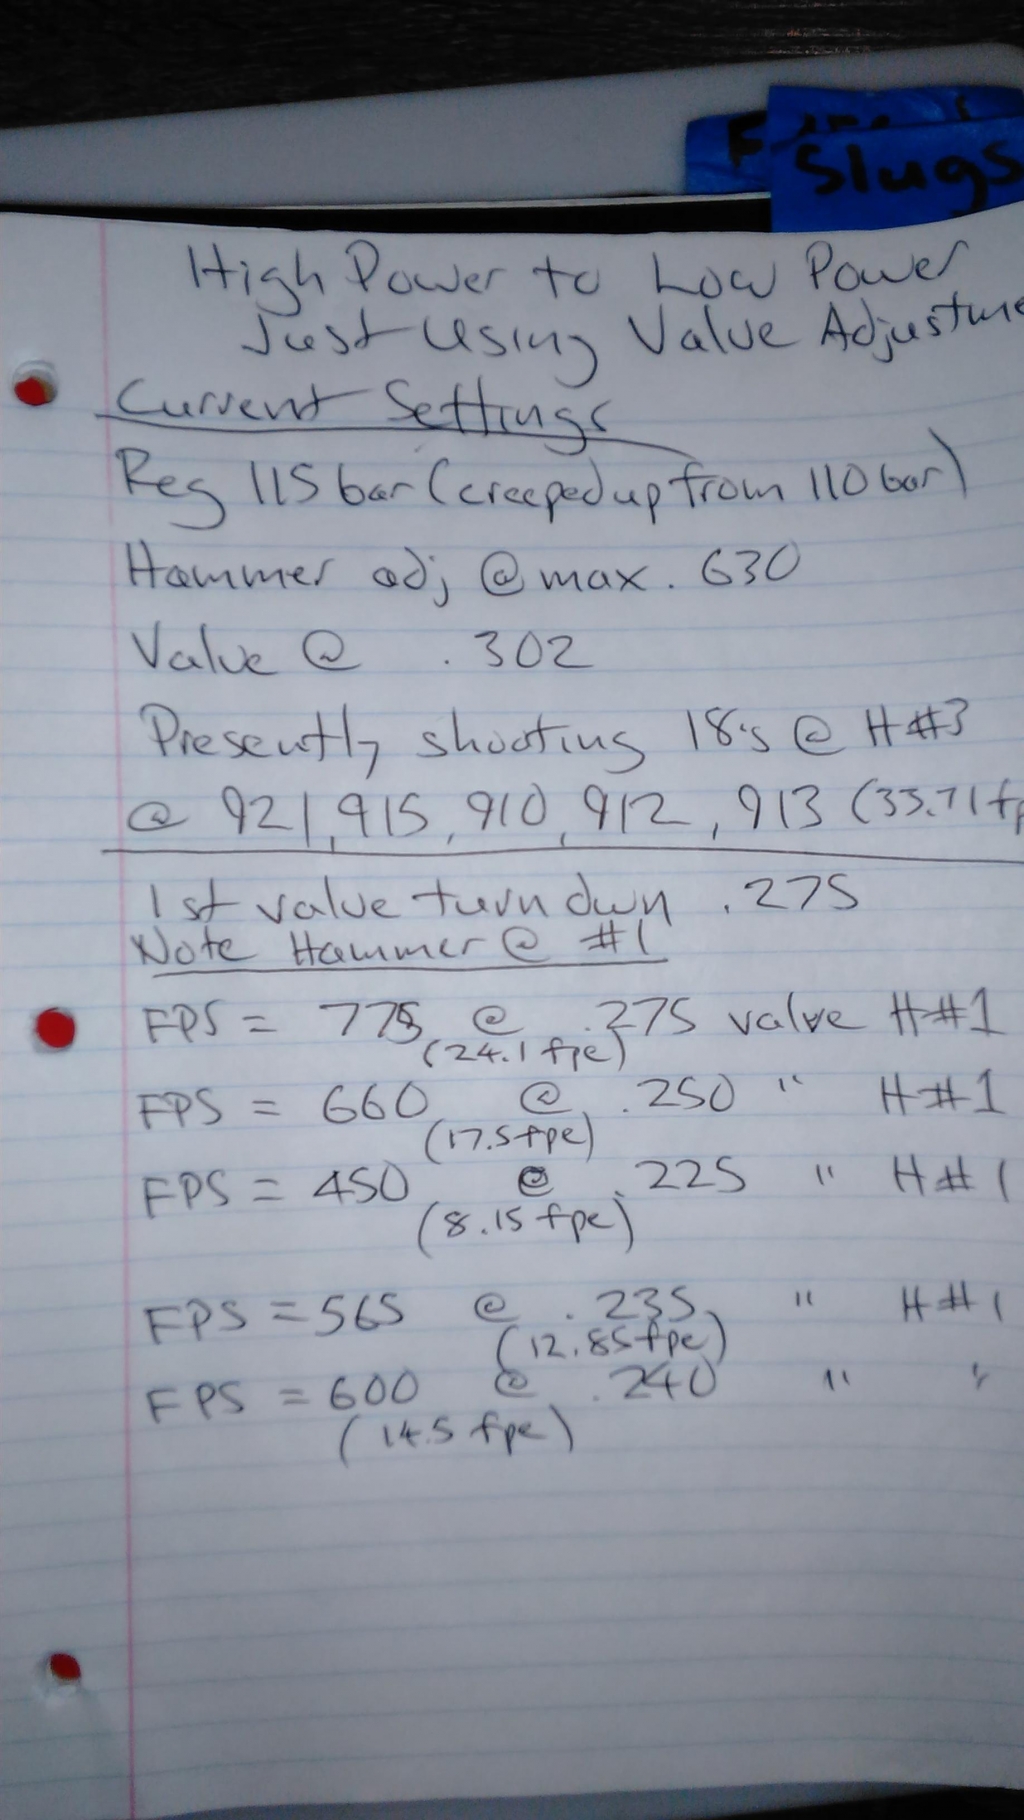 Slugs
High Power to Low Power
Just Using Value Adjustme
Current Settings
Reg 115 bar (creeped up from 110 bar)
Hammer adj @ max . 630
Value @ . 302
Presently shooting 18's @ H#3
@ 921, 915, 910, 912, 913 (33.71 fp
1st value turn down .275
Note Hammer @ #1
FPS = 775 @ .275 valve H#1
(24.1 fpe)
FPS = 660 @ .250 " H#1
(17.5 fpe)
FPS = 450 @ .225 " H#1
(8.15 fpe)
FPS = 565 @ .235 " H#1
(12.85 fpe)
FPS = 600 @ .240 " "
(14.5 fpe)